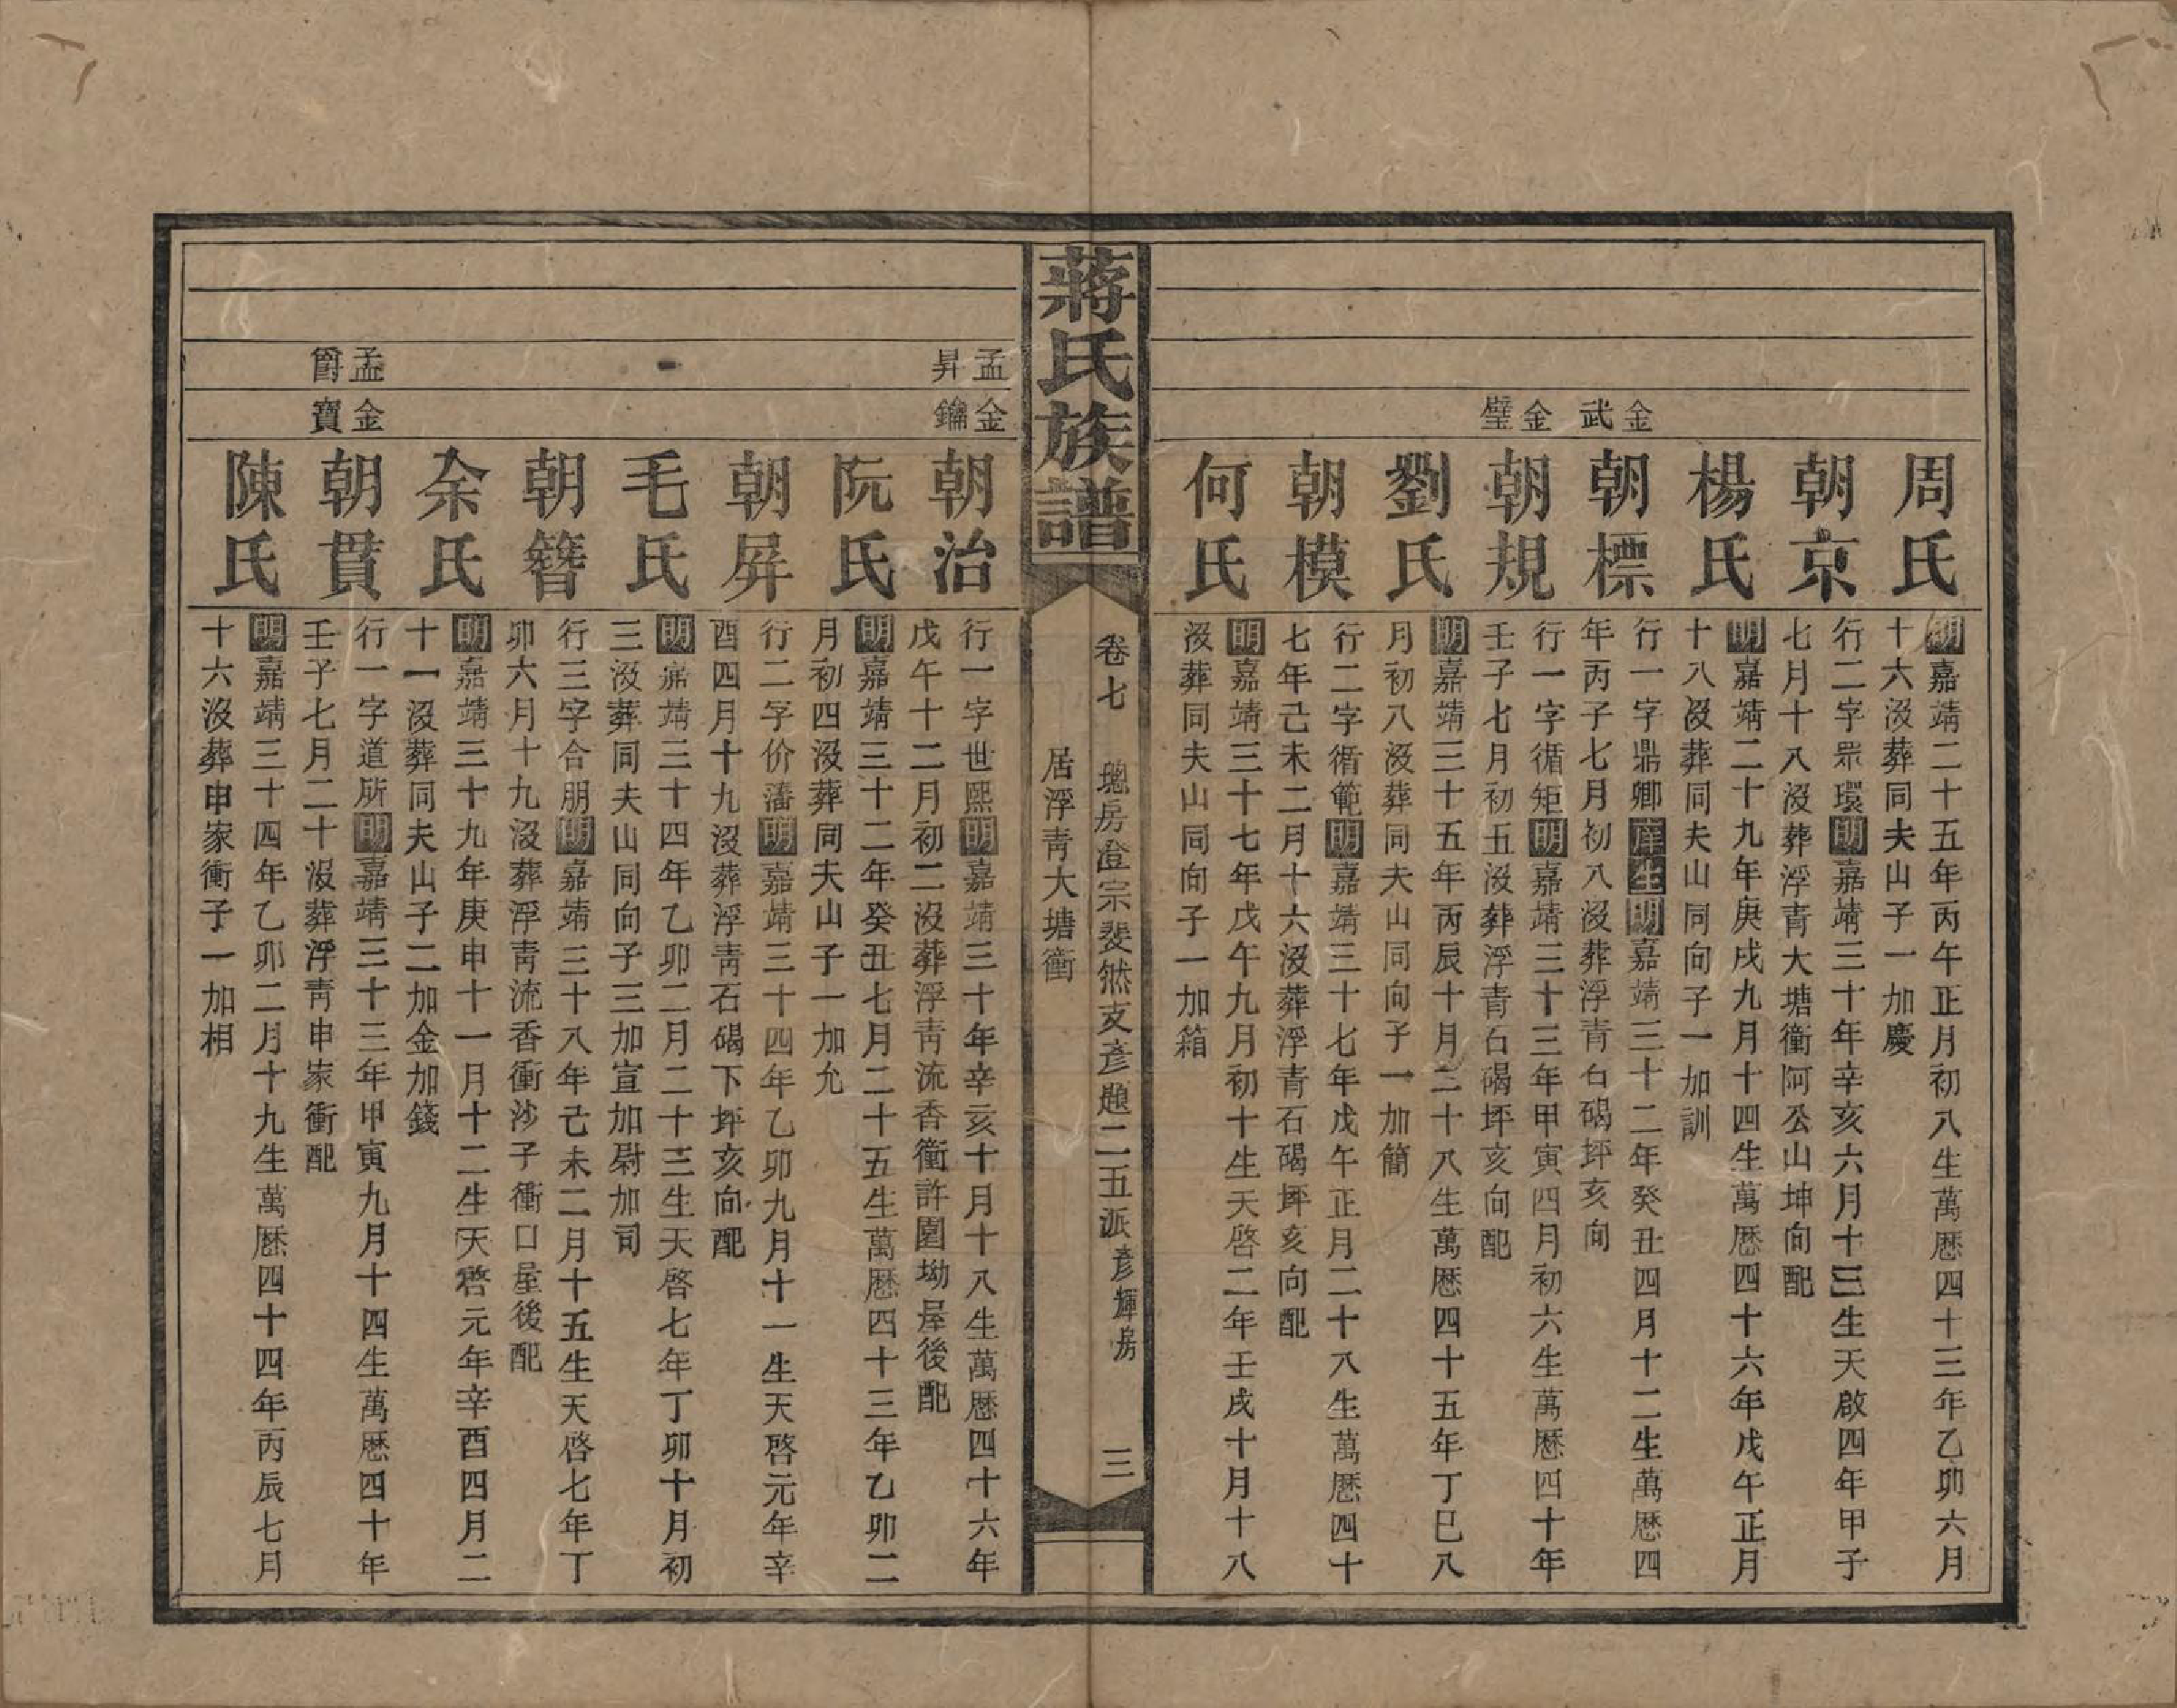 周氏
明嘉靖二十五年丙午正月初八生萬厯四十三年乙卯六月
十六沒葬同夫山子一加慶
朝京
行二字眾環明嘉靖三十年辛亥六月十三生天啟四年甲子
七月十八沒葬浮青大塘衝阿公山坤向配
楊氏
明嘉靖二十九年庚戌九月十四生萬厯四十六年戊午正月
十八沒葬同夫山同向子一加訓
金武
朝標
行一字鼎卿庠生明嘉靖三十二年癸丑四月十二生萬厯四
年丙子七月初八沒葬浮青石碣坪亥向
金璧
朝規
行一字循矩明嘉靖三十三年甲寅四月初六生萬厯四十年
壬子七月初五沒葬浮青石碣坪亥向配
劉氏
明嘉靖三十五年丙辰十月二十八生萬厯四十五年丁巳八
月初八沒葬同夫山同向子一加簡
朝模
行二字循範明嘉靖三十七年戊午正月二十八生萬厯四十
七年己未二月十六沒葬浮青石碣坪亥向配
何氏
明嘉靖三十七年戊午九月初十生天啓二年壬戌十月十八
沒葬同夫山同向子一加箱
蔣氏族譜
卷七 璁房澄宗斐然支彥題二五派彥輝房
居浮青大塘衝
三
孟昇
金鑰
朝治
行一字世熙明嘉靖三十年辛亥十月十八生萬厯四十六年
戊午十二月初二沒葬浮青流香衝許園坳屋後配
阮氏
明嘉靖三十二年癸丑七月二十五生萬厯四十三年乙卯二
月初四沒葬同夫山子一加允
朝屏
行二字价藩明嘉靖三十四年乙卯九月十一生天啓元年辛
酉四月十九沒葬浮青石碣下坪亥向配
毛氏
明嘉靖三十四年乙卯二月二十三生天啓七年丁卯十月初
三沒葬同夫山同向子三加宣加尉加司
朝簪
行三字合朋明嘉靖三十八年己未二月十五生天啓七年丁
卯六月十九沒葬浮青流香衝沙子衝口屋後配
余氏
明嘉靖三十九年庚申十一月十二生天啓元年辛酉四月二
十一沒葬同夫山子二加金加錢
孟爵
金寶
朝貫
行一字道所明嘉靖三十三年甲寅九月十四生萬厯四十年
壬子七月二十沒葬浮青申家衝配
陳氏
明嘉靖三十四年乙卯二月十九生萬厯四十四年丙辰七月
十六沒葬申家衝子一加相